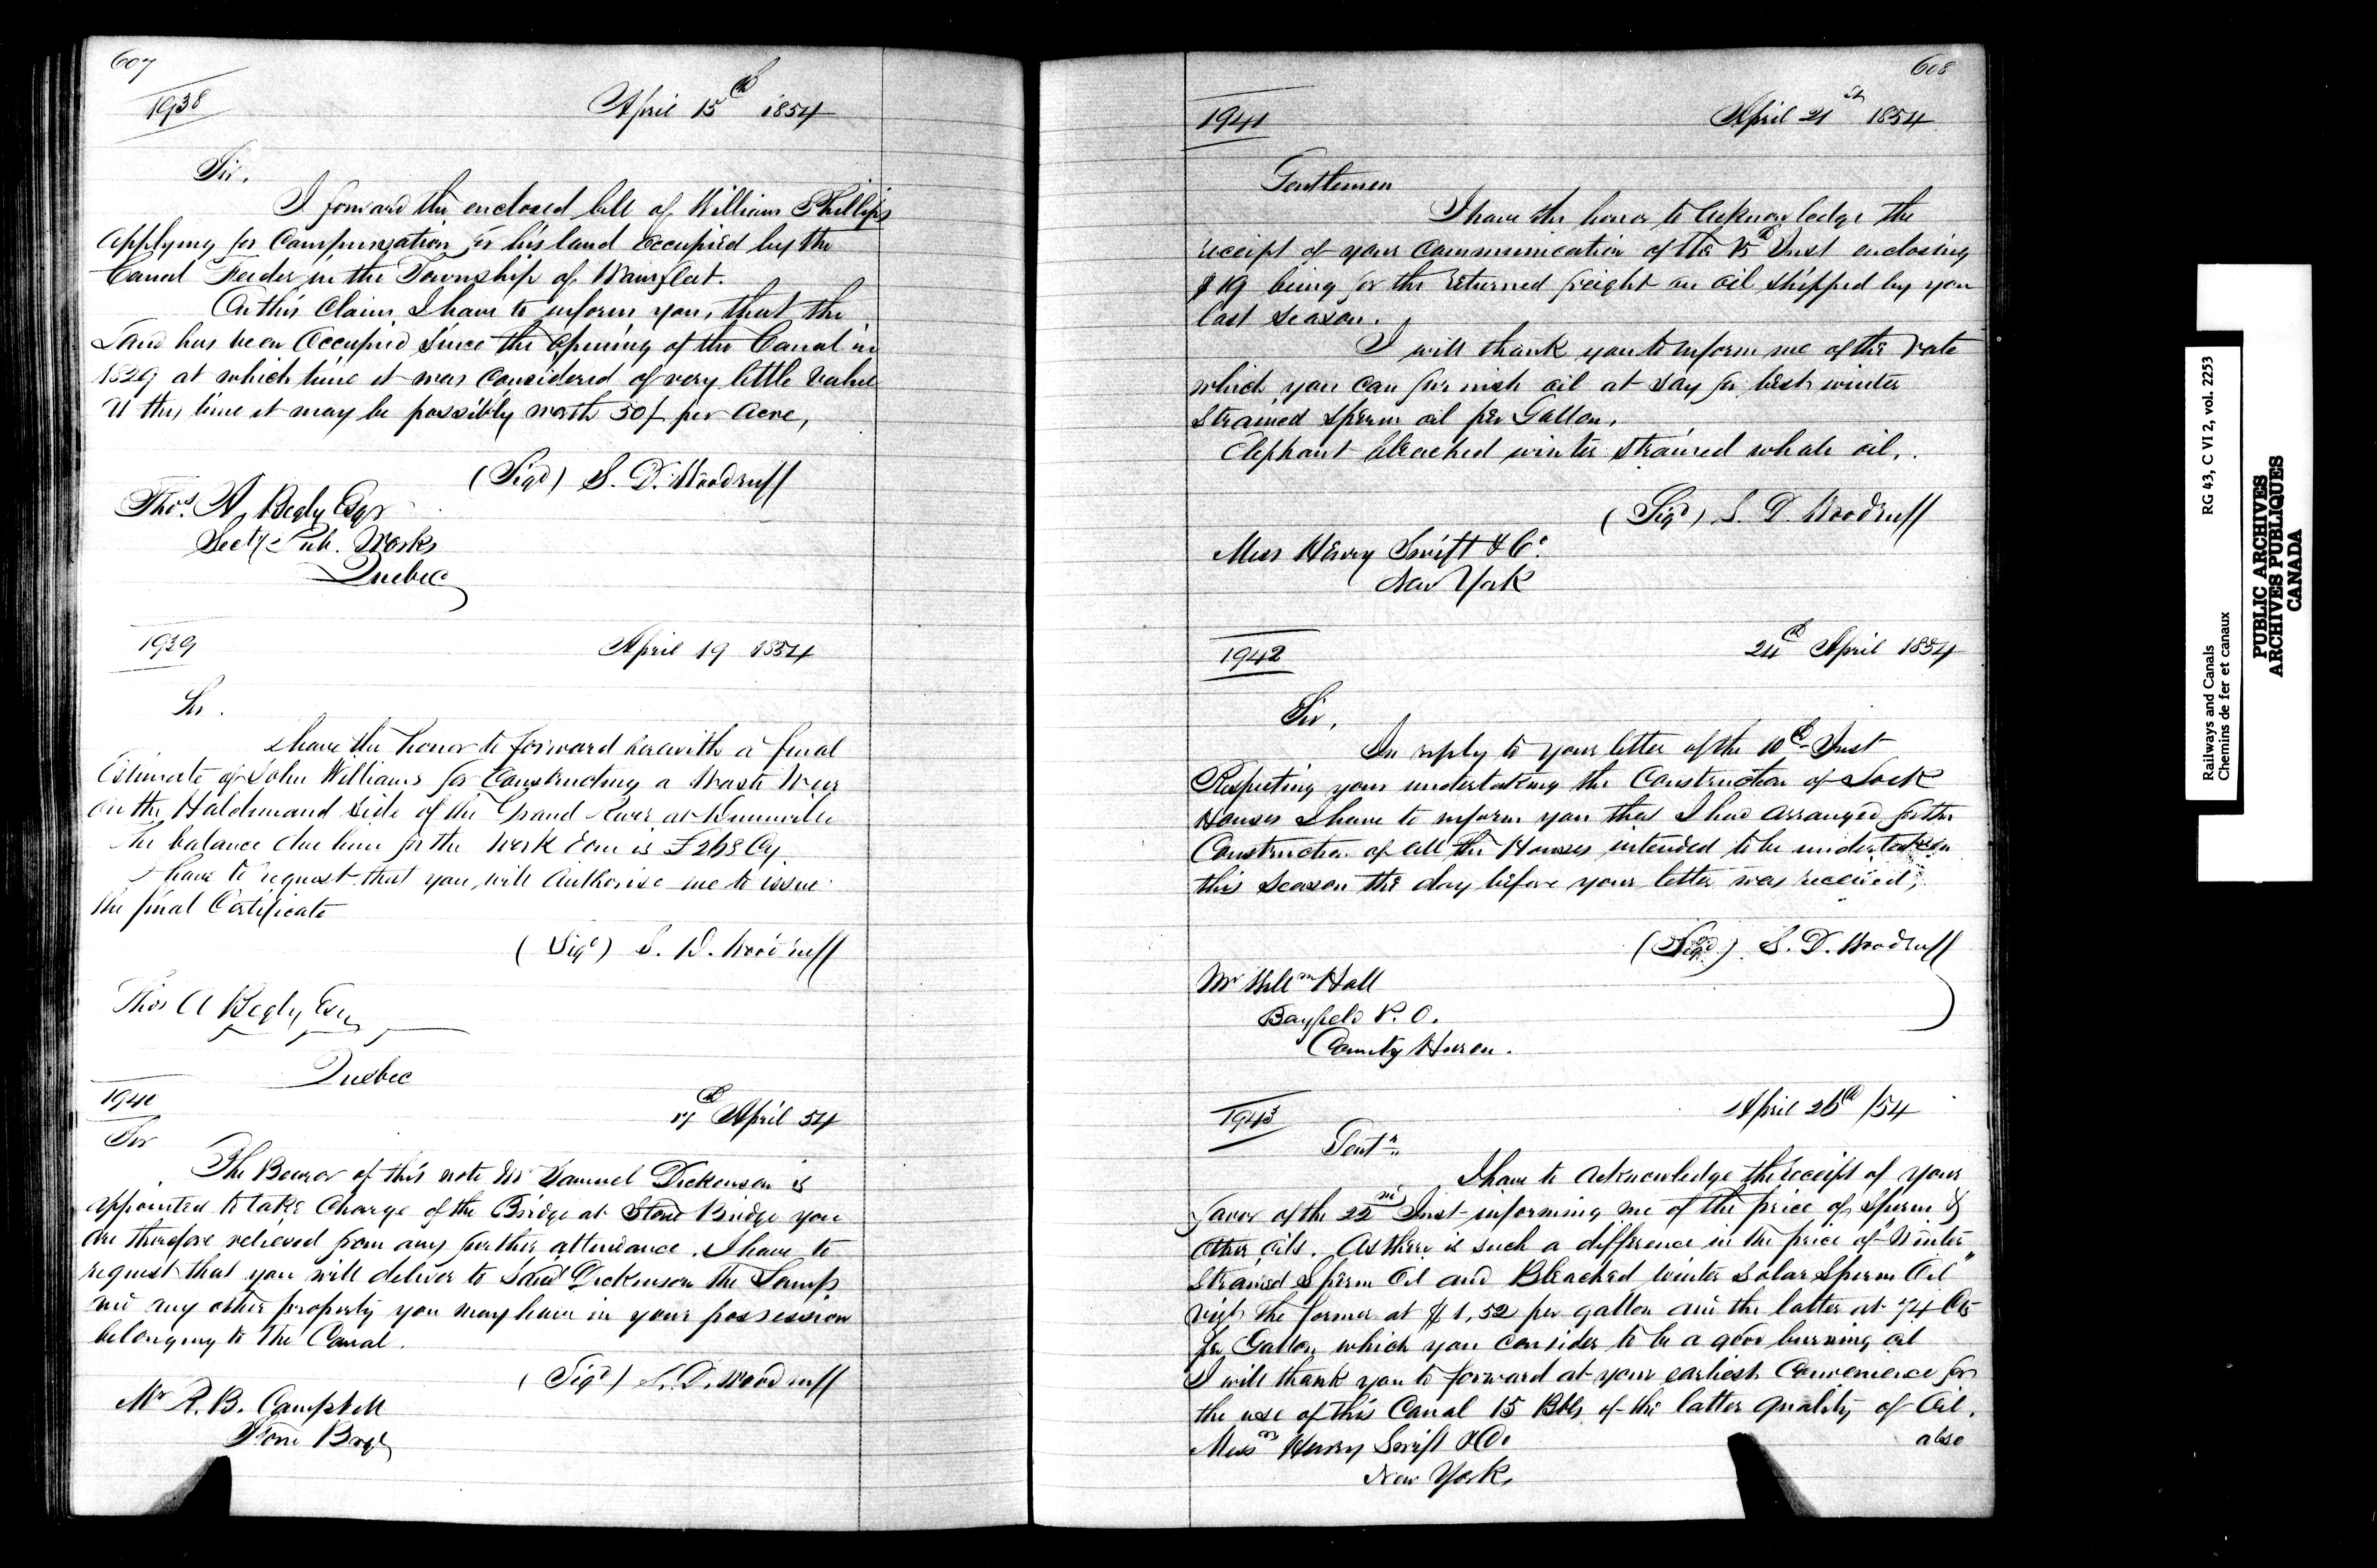 607
1938
April 15th 1854
Sir,
I forward the enclosed bill of William Phillips
applying for Compensation for his land occupied by the
Canal Feeder in the Township of Wainfleet.
On this Claim I have to inform you, that the
Land has been Occupied Since the opening of the Canal in
1829 at which time it was Considered of very little value
At this time it may be possibly worth 50/ per Acre,
(Sigd) S. D. Woodruff
Thos. A. Begly Esqr
Secty Pub. Works
Quebec
1939
April 19 1854
Sir.
I have the honor to forward herewith a final
Estimate of John Williams for Constructing a Waste Weir
on the Haldimand Side of the Grand River at Dunnville
The balance due him for the Work done is £268 Cy.
I have to request that you will Authorise me to issue
the final Certificate
(Sigd) S. D. Woodruff
Thos A Begly Esq
Quebec
1940
April 54
Sir
The Bearer of this note Mr Samuel Dickenson is
appointed to take Charge of the Bridge at Stone Bridge you
are therefore relieved from any further attendance. I have to
request that you will deliver to said Dickenson the Lamps
and any other property you may have in your possession
belonging to the Canal.
(Sigd) S. D. Woodruff
Mr R. B. Campbell
Stone Bridge
608
1941
April 21st 1854
Gentlemen
I have the honor to Acknowledge the
receipt of your Communication of the 15th Inst enclosing
$19 being for the returned freight on oil shipped by you
last season.
I will thank you to inform me of the rate
which you can furnish oil at say for best winter
Strained Sperm oil per Gallon,
Elephant bleached winter strained whale oil.
(Sigd) S. D. Woodruff
Mess Henry Swift & Co.
New York
1942
24th April 1854
Sir,
In reply to your letter of the 10th Inst
Respecting your undertaking the Construction of Lock
Houses I have to inform you that I had arranged for the
Construction of all the Houses intended to be undertaken
this Season the day before your letter was received,
(Sigd) S. D. Woodruff
Mr Willm Hall
Bayfield P. O.
County Huron.
1943
April 26th /54
Gentn
I have to Acknowledge the receipt of your
favor of the 22nd Inst informing me of the price of Sperm &
other oils. As there is such a difference in the price of Winter
Strained Sperm Oil and Bleached Winter Solar Sperm Oil"
vizt the former at $1,52 per gallon and the latter at 74 Cts
per Gallon which you consider to be a good burning oil
I will thank you to forward at your earliest Convenience for
the use of this Canal 15 Bbls of the latter quality of Oil.
also
Messrs Henry Swift & Co
New York,
Railways and Canals
Chemins de fer et canaux
RG 43, C VI 2, vol. 2253
PUBLIC ARCHIVES
ARCHIVES PUBLIQUES
CANADA